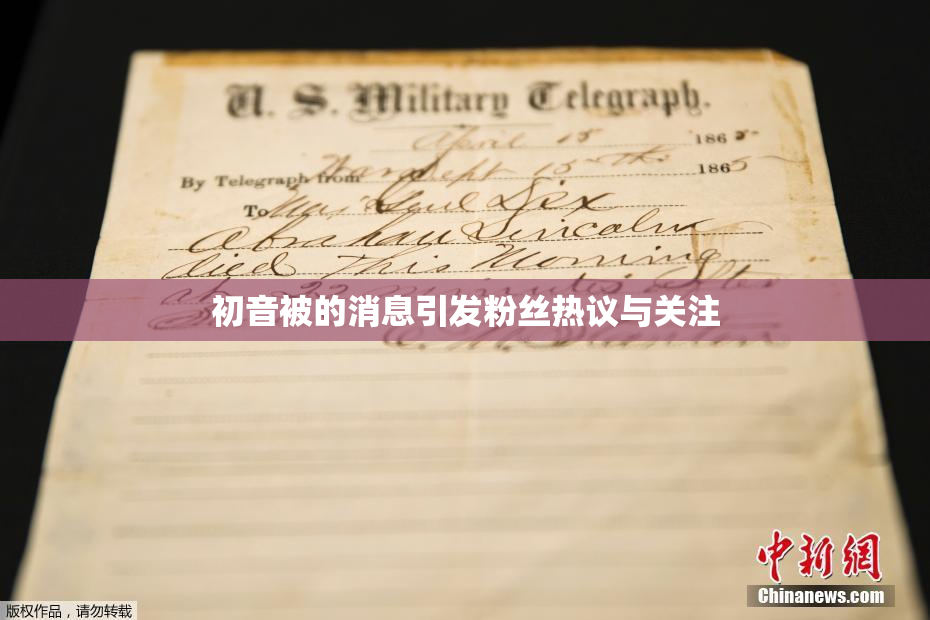 U. S. Military Telegraph.
April 15 1865
By Telegraph from War Dept 15th 1865
To Maj Genl Dix
Abraham Lincoln
died This Morning
at 22 minutes after
初音被的消息引发粉丝热议与关注
E. M. Stanton
中新网
Chinanews.com
版权作品，请勿转载